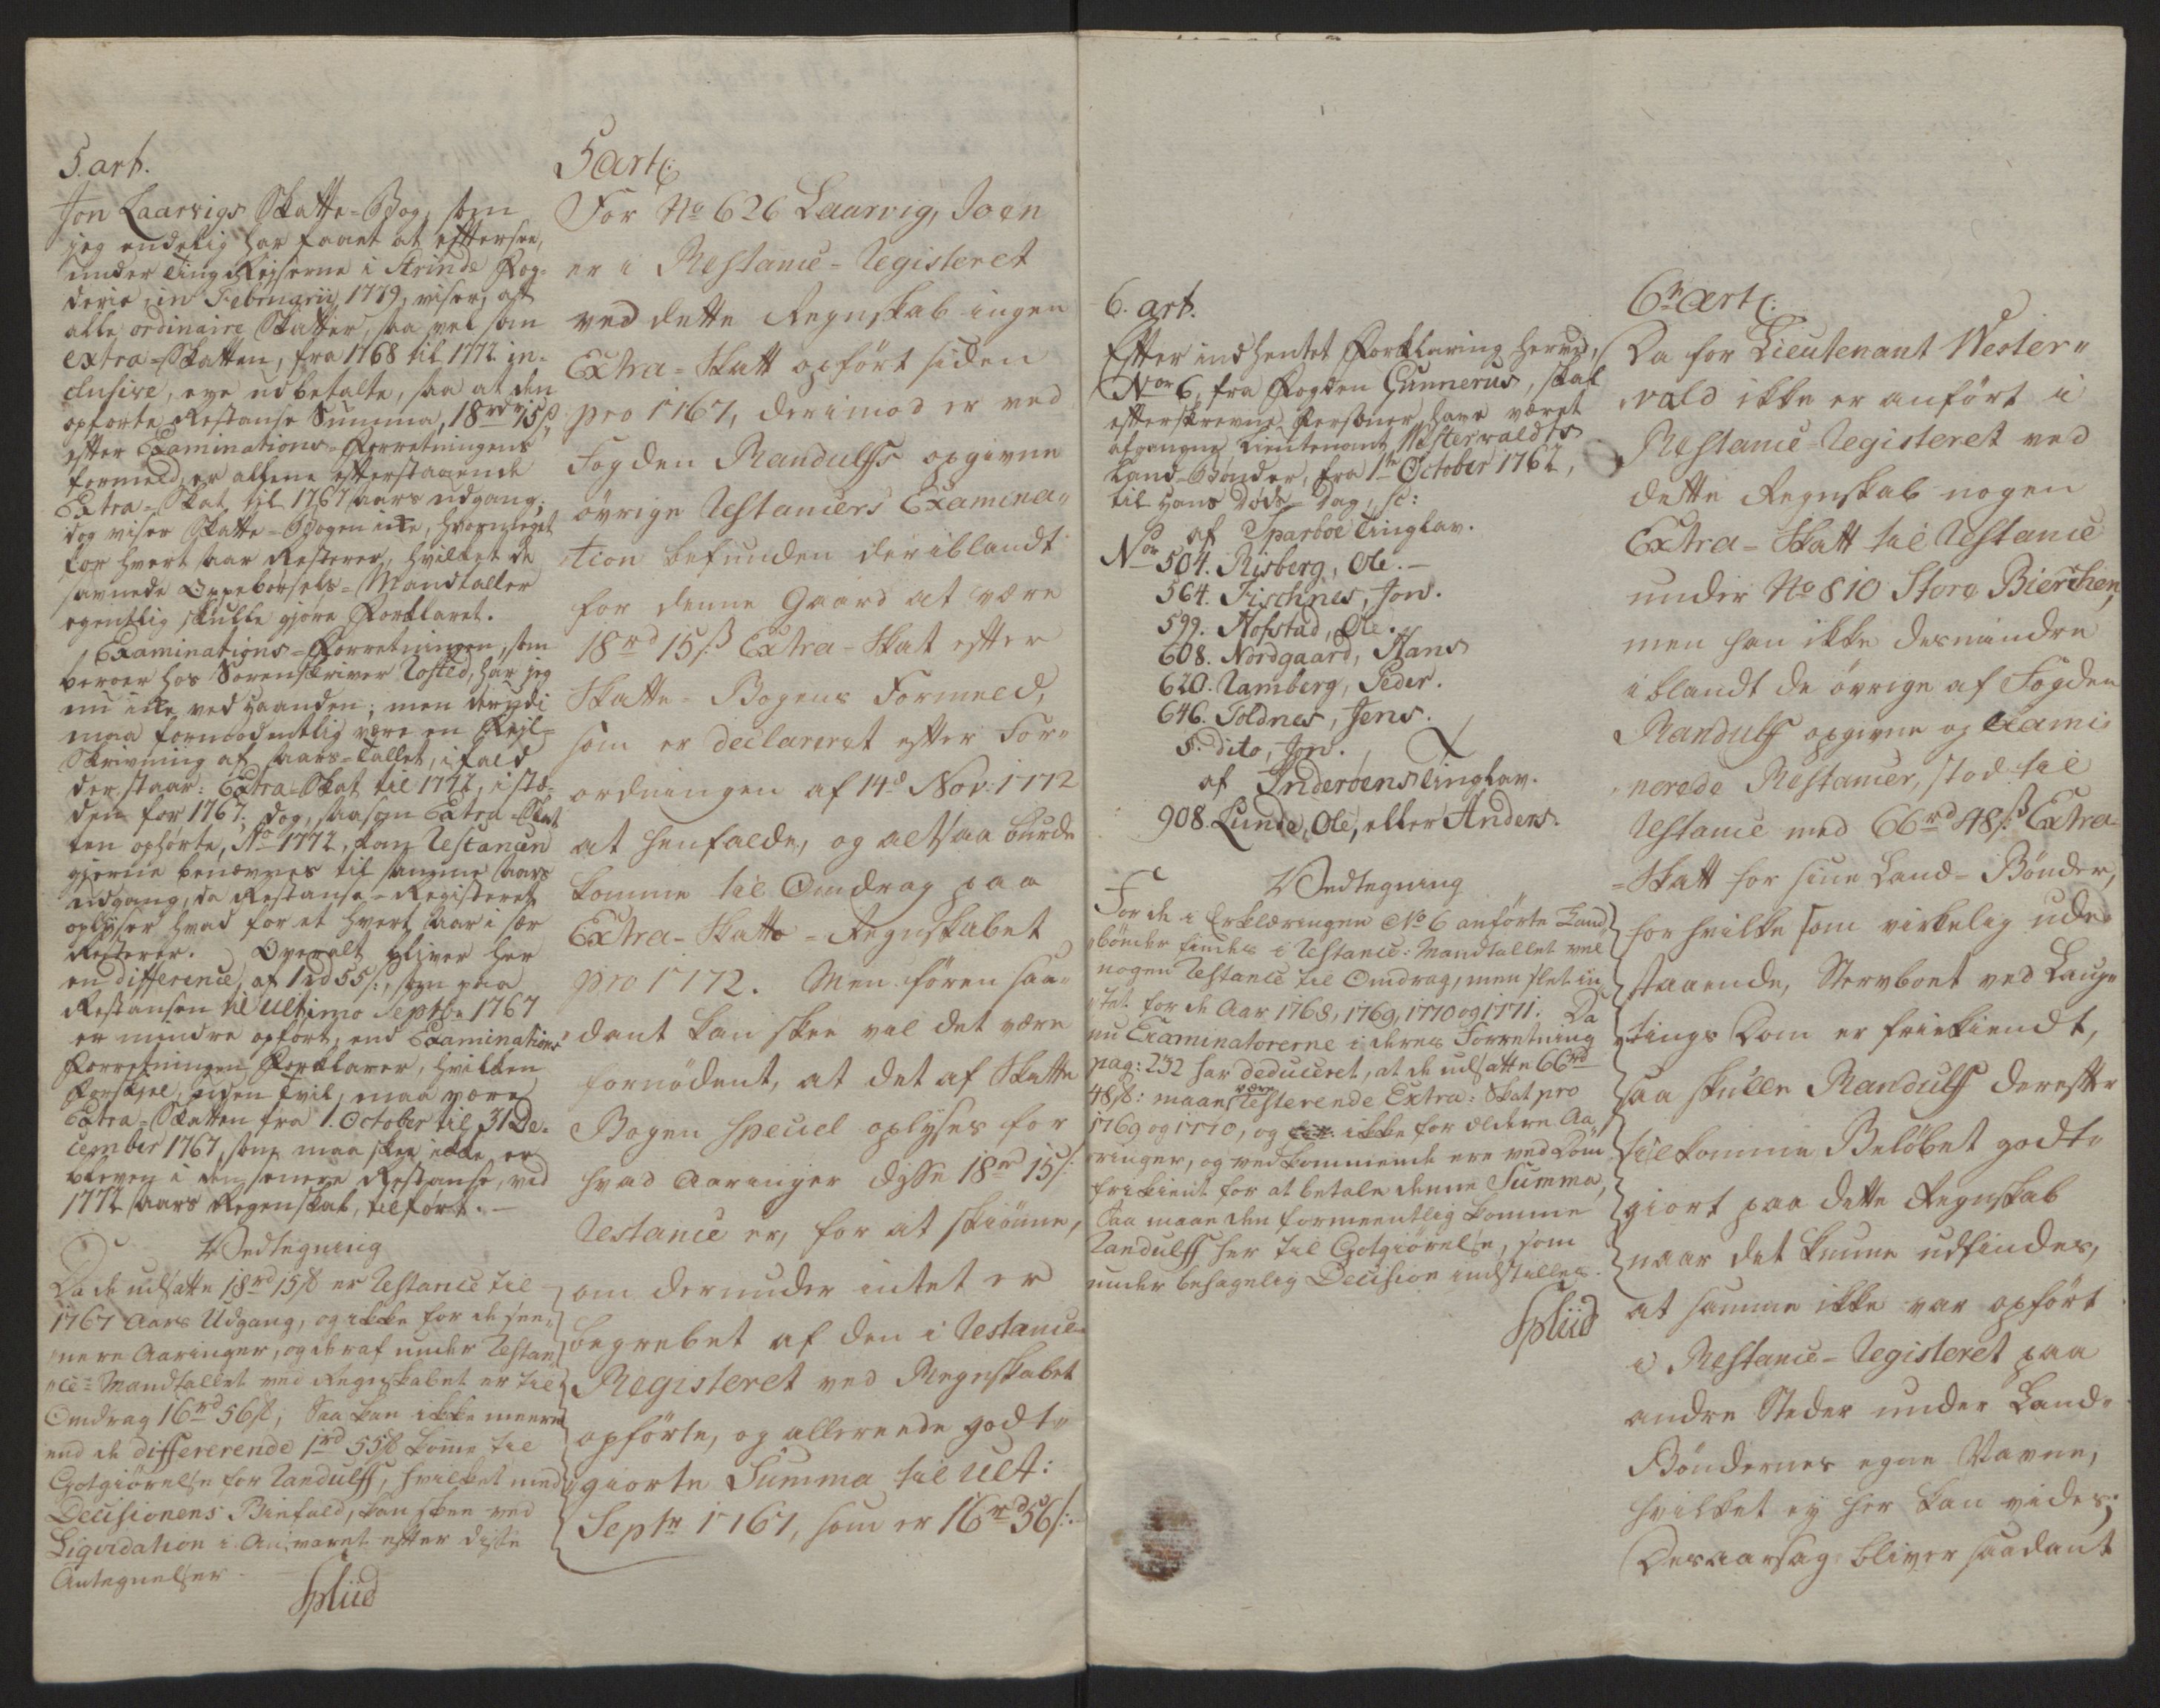 5. art.
Jon Laarvigs Skatte-Bog, som
jeg endelig har faaet at eftersee,
under Ting Rejserne i Strinde Fog-
derie, in Februarij 1779, viser, att
alle ordinaire Skatter, saa vel som
extra-Skatten, fra 1768 til 1772 in-
clusive, ere udbetalte, saa at den
opførte Restanse Summa, 18 rd 15 s,
efter Examinations-Forretningens
formeld, er allene efterstaaende
Extra-Skat til 1767 aars udgang;
dog viser Skatte-Bogen icke, hvormeget
for hvert aar Resterer, hvilket de
savnede Oppebørsels-Mandtaller
egentlig skulle gjøre Forklaret.
Examinations-Forretningen, som
beroer hos Sorenskriver Rosted, har jeg
nu icke ved Haanden; men derudi
maa formodentlig være en Fejl-
Skrivning af Aars-Tallet, ifald
der staar: Extra-Skat til 1772, i stæ-
den for 1767; dog, saasom Extra-Skat
ten ophørte, Ao 1772, kan Restancen
gjerne benævnes til samme Aars
udgang, da Restanse-Registeret
oplyser hvad for et hvert Aar i sær
Resterer. Overalt bliver her
en difference, af 1 rd 55 s:, som paa
Restansen til ultimo Septbr 1767
er mindre opført, end Examinations
Forretningen Forklarer, hvilken
Forskjel, uden tvil, maa være
Extra-Skatten fra 1. October til 31 De-
cember 1767, som maaskee ikke er
bleven i den senere Restanse, ved
1772 Aars Regenskab, tilført. —
Vedtegning
Da de udsatte 18 rd 15 s er Restance til
1767 Aars Udgang, og ikke for de see-
nere Aaringer, og deraf under Restan
ce-Mandtallet ved Regnskabet er til
Omdrag 16 rd 56 s; Saa kan ikke meere
end de differerende 1 rd 55 s komme til
Gotgiørelse for Randulff, hvilket med
Decisionens Biefald, kan skee ved
Liqvidation i Ansvaret efter disse
Antegnelser.
Spliid
5 Art:
For No 626 Laarvig, Joen
er i Restance-Registeret
ved dette Regnskab ingen
Extra-Skatt opført siden
pro 1767, derimod er ved
Fogden Randulffs opgivne
øvrige Restancers Examina-
tion befunden deriblandt
for denne Gaard at være
18 rd 15 s Extra-Skat efter
Skatte-Bogens Formeld,
som er declareret efter For-
ordningen af 14de Nov: 1772
at henfalde, og altsaa burde
komme til Omdrag paa
Extra-Skatte-Regnskabet
pro 1772. Men føren saa-
dant kan skee vil det være
fornødent, at det af Skatte
Bogen speciel oplyses for
hvad Aaringer disse 18 rd 15 s:
Restance er, for at skiønne,
om derunder intet er
begrebet af den i Restance-
Registeret ved Regnskabet
opførte, og allereede godt-
giorte Summa til Ult:
Septr 1767, som er 16 rd 56 s:
6. art.
Efter indhentet Forklaring herved,
Nor 6, fra Fogden Gunnerus, skal
efterskrevne Personer have været
afgangne Lieutenant Westerwaldts
Land-Bønder, fra 1te October 1762,
til Hans Døds-Dag, sc:
af Sparboe Tinglav.
Nor 504. Risberg, Ole. —
564. Fischnes, Jon.
599. Hofstad, Ole.
608. Nordgaard, Hans
620. Ramberg, Peder.
646. Foldnes, Jens.
s. dito, Jon.
af Inderøens Tinglav.
908. Lunde, Ole, eller Anders.
Vedtegning
For de i Erklæringen No 6 anførte Land
bønder findes i Restance-Mandtallet vel
nogen Restance til Omdrag, men slet in
tet for de Aar 1768, 1769, 1770 og 1771. Da
nu Examinatorerne i deres Forretning
pag: 232 har deduceret, at de udsatte 66 rd
48 s: maae være Resterende Extra-Skat pro
1769 og 1770, og ikke for ældere Aa-
ringer, og vedkommende ere ved Dom
frikient for at betale denne Summa,
Saa maae den formeentlig komme
Randulff her til Gotgiørelse, som
under behagelig Decision indstilles.
Spliid
6te Art:
Da for Lieutenant Wester-
vald ikke er anført i
Restance-Registeret ved
dette Regnskab nogen
Extra-Skatt til Restance
under No 810 Store Bierchen,
men han ikke desmindre
iblandt de øvrige af Fogden
Randulff opgivne og Exami-
nerede Restancer, stod til
Restance med 66 rd 48 s: Extra-
Skatt for sine Land-Bønder,
for hvilke som virkelig ude-
staaende, Stervboet ved Laug-
tings Dom er friekiendt,
saa skulle Randulff derefter
tilkomme Beløbet godt-
giort paa dette Regnskab
naar det kunne udfindes,
at samme ikke var opført
i Restance-Registeret paa
andre Steder under Land-
Bøndernes egne Navne,
hvilket ey her kan vides;
Desaarsag bliver saadant